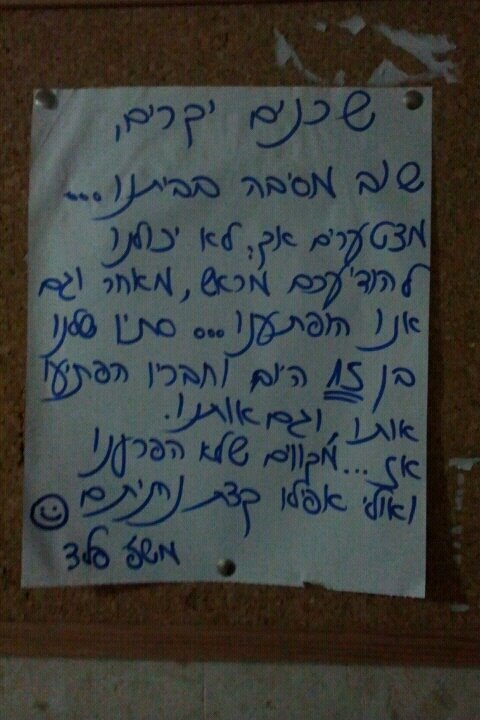 שכנים יקרים,
שוב מסיבה בביתנו...
מצטערים אך לא יכולנו
להודיעכם מראש, מאחר וגם
אנו הופתענו... סתיו שלנו
בן 15 היום וחבריו הפתיעו
אותו, וגם אותנו.
אז... מקווים שלא הפרענו
ואולי אפילו קצת נהניתם
משפ' פלד